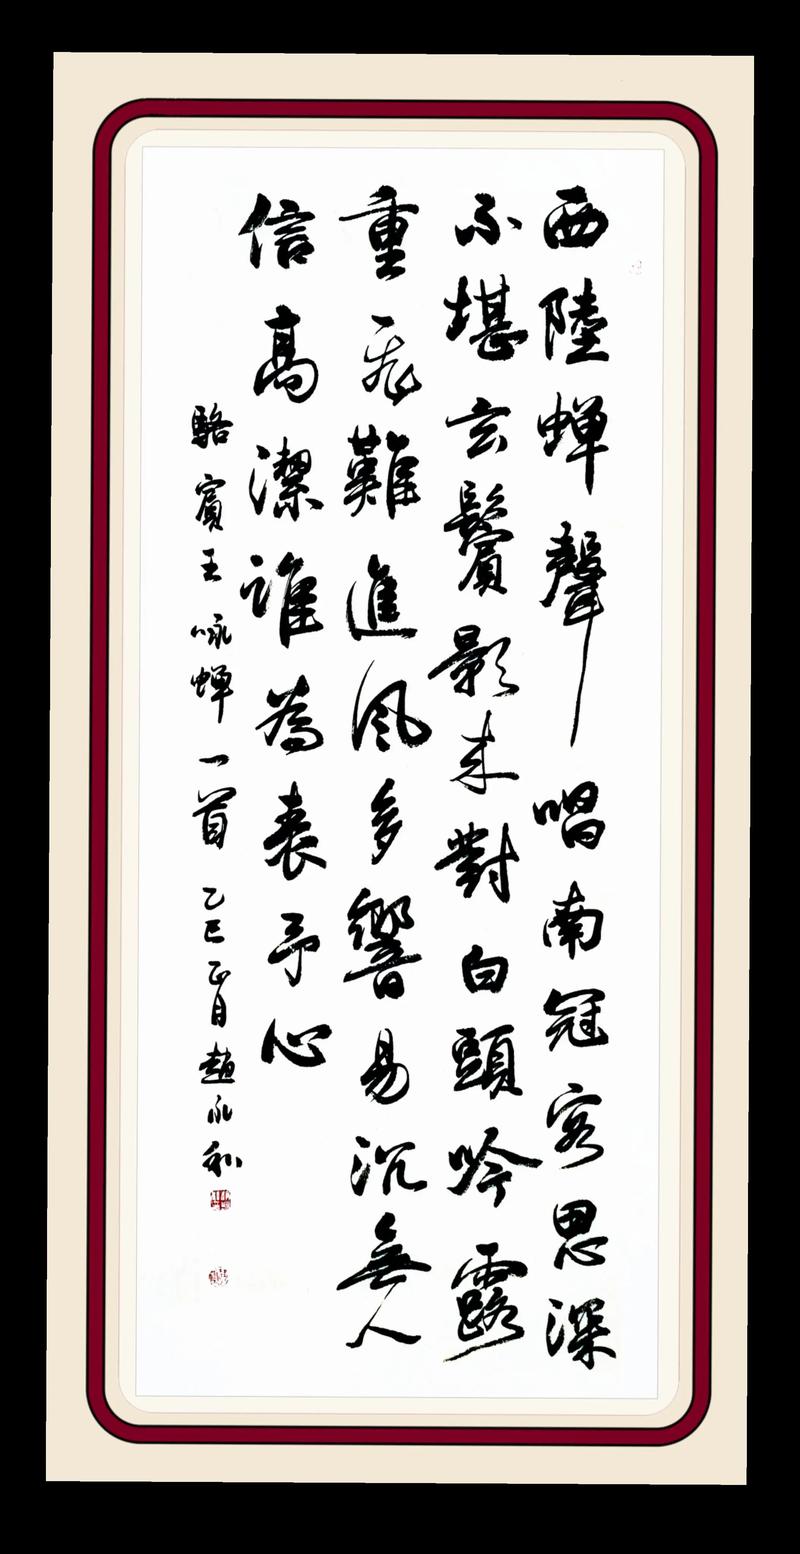 西陸蝉聲唱南冠客思深
不堪玄鬢影来對白頭吟露
重飛難進風多響易沉無人
信高潔誰為表予心
駱賓王咏蝉一首乙巳正月趙永和